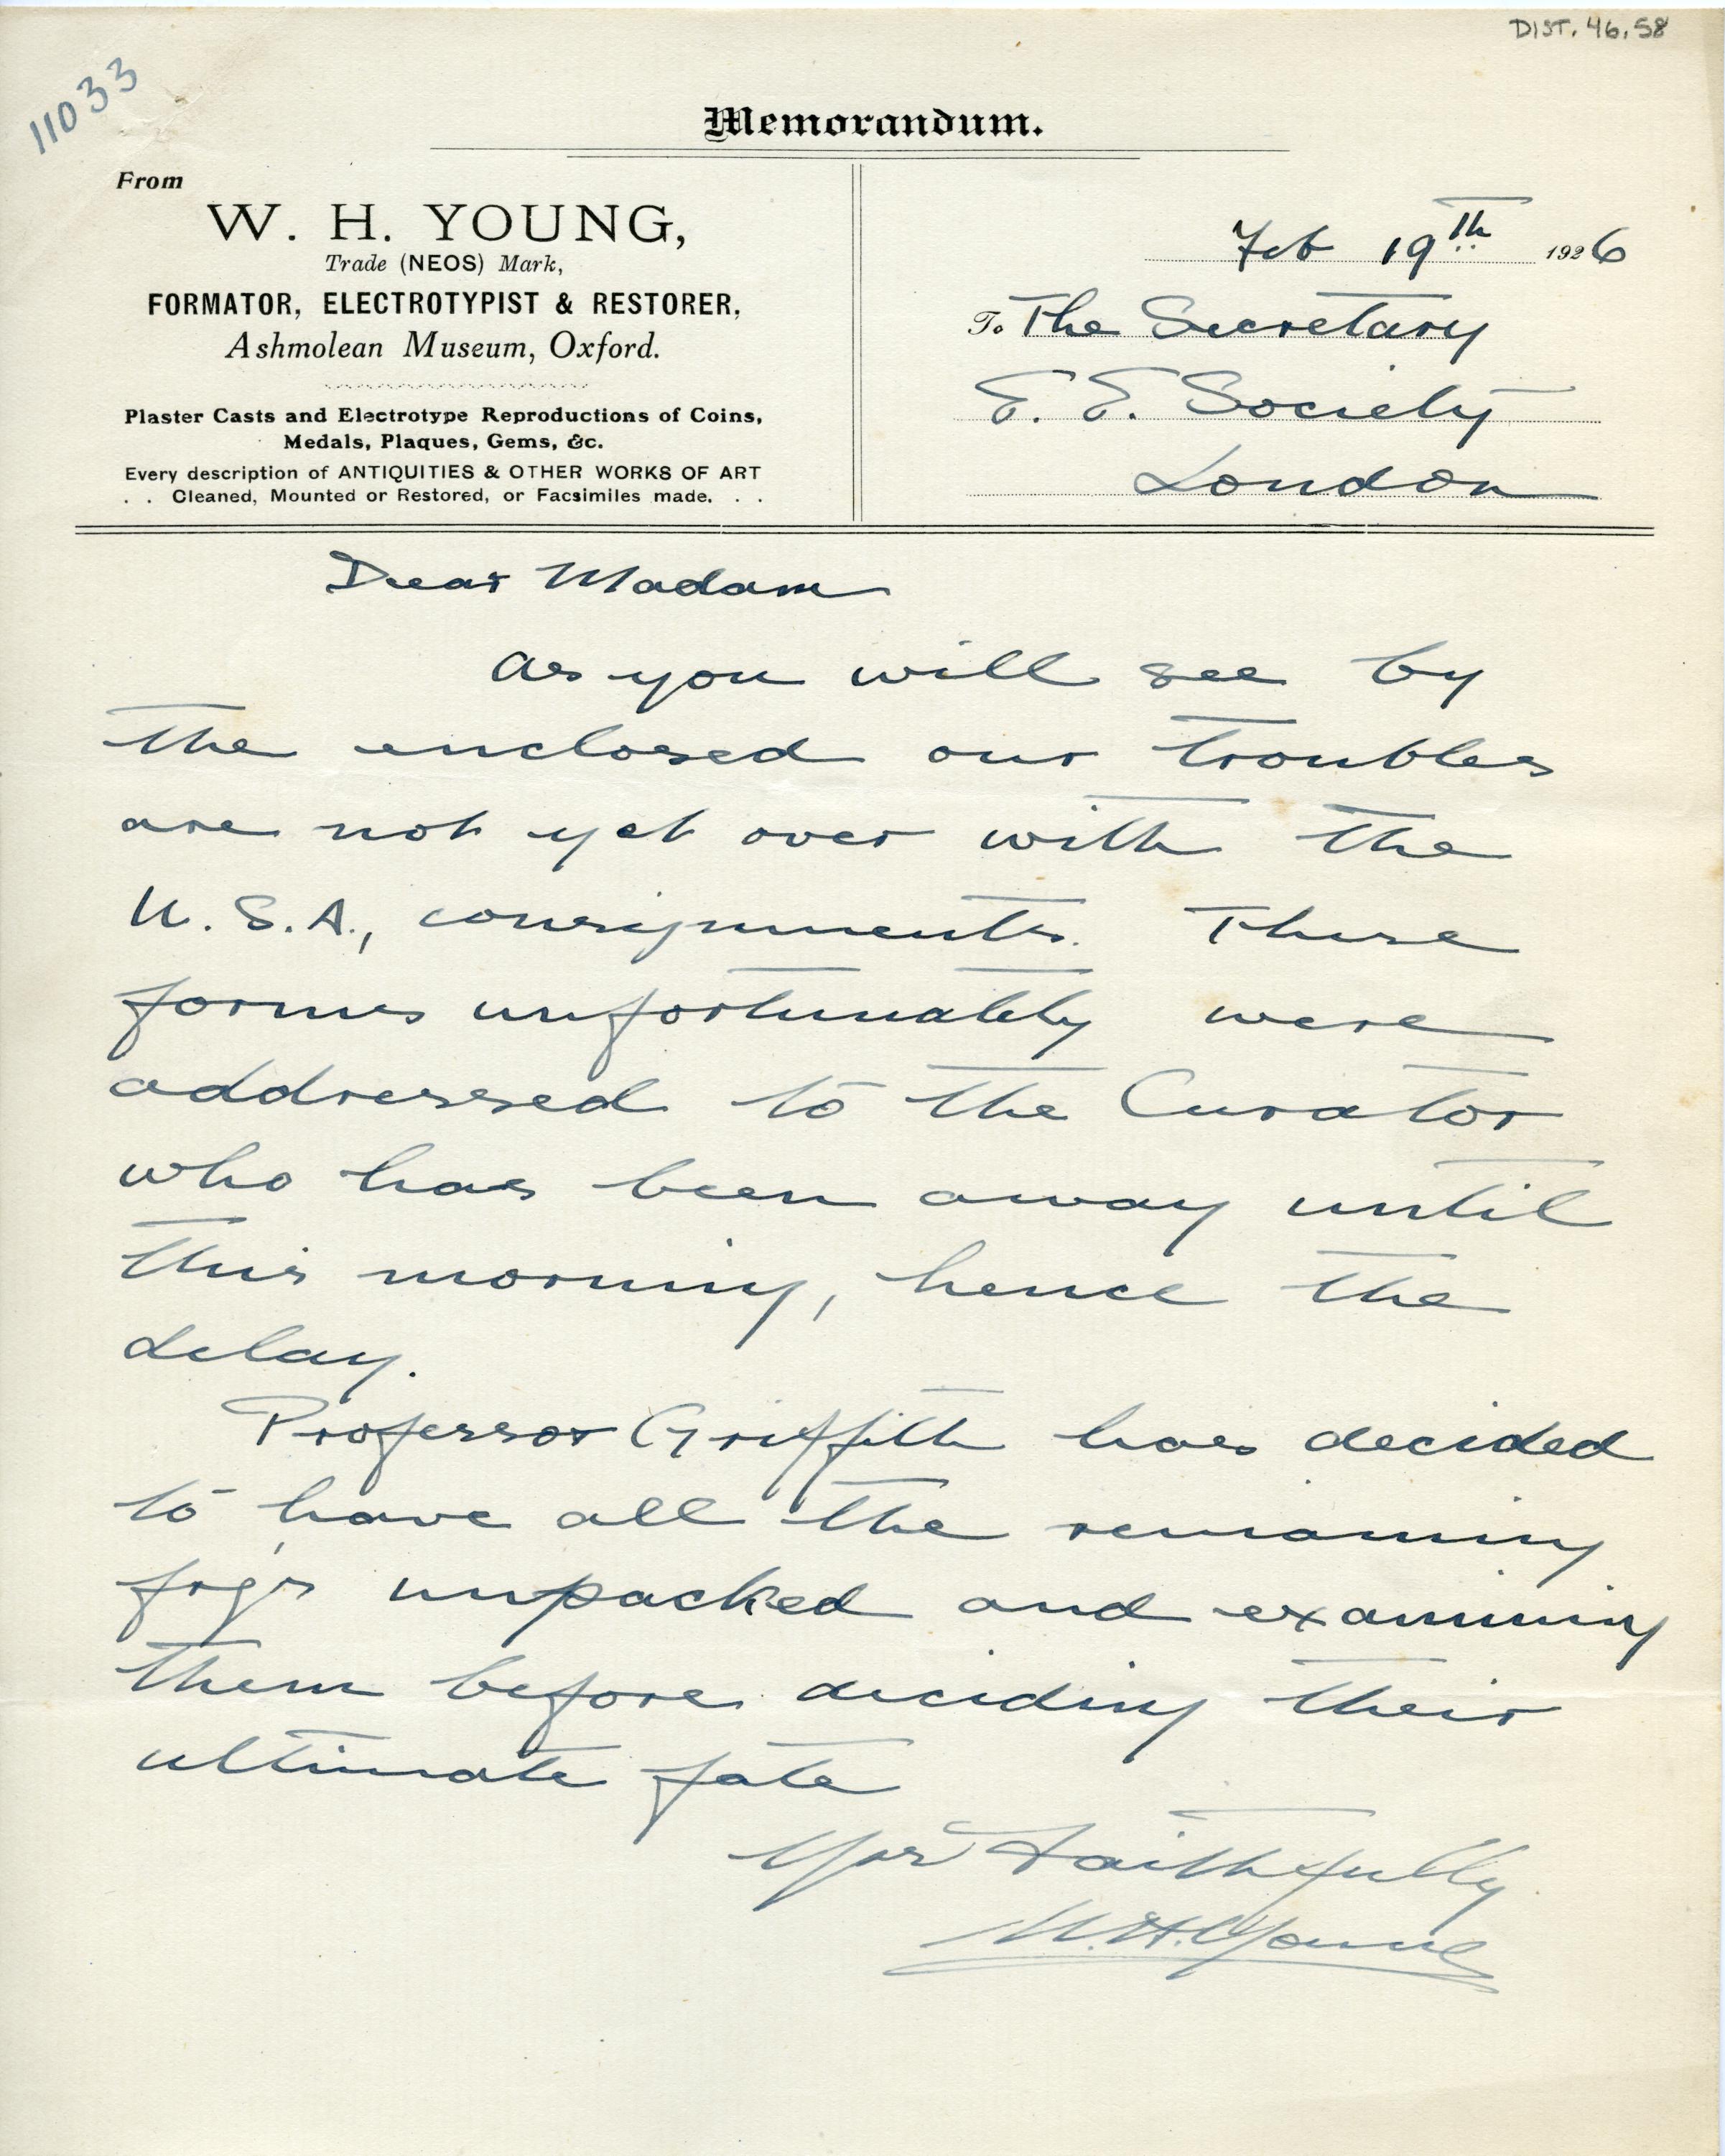 DIST. 46.58
11033
Memorandum.
From
W. H. YOUNG,
Trade (NEOS) Mark,
FORMATOR, ELECTROTYPIST & RESTORER,
Ashmolean Museum, Oxford.
Plaster Casts and Electrotype Reproductions of Coins,
Medals, Plaques, Gems, &c.
Every description of ANTIQUITIES & OTHER WORKS OF ART
. . Cleaned, Mounted or Restored, or Facsimiles made. . .
Feb 19th 1926
To The Secretary
E. E. Society
London
Dear Madam
As you will see by
the enclosed our troubles
are not yet over with the
U.S.A., consignments. These
forms unfortunately were
addressed to the Curator
who has been away until
this morning, hence the
delay.
Professor Griffith has decided
to have all the remaining
frg's unpacked and examining
them before deciding their
ultimate fate
Yrs Faithfully
W.H.Young